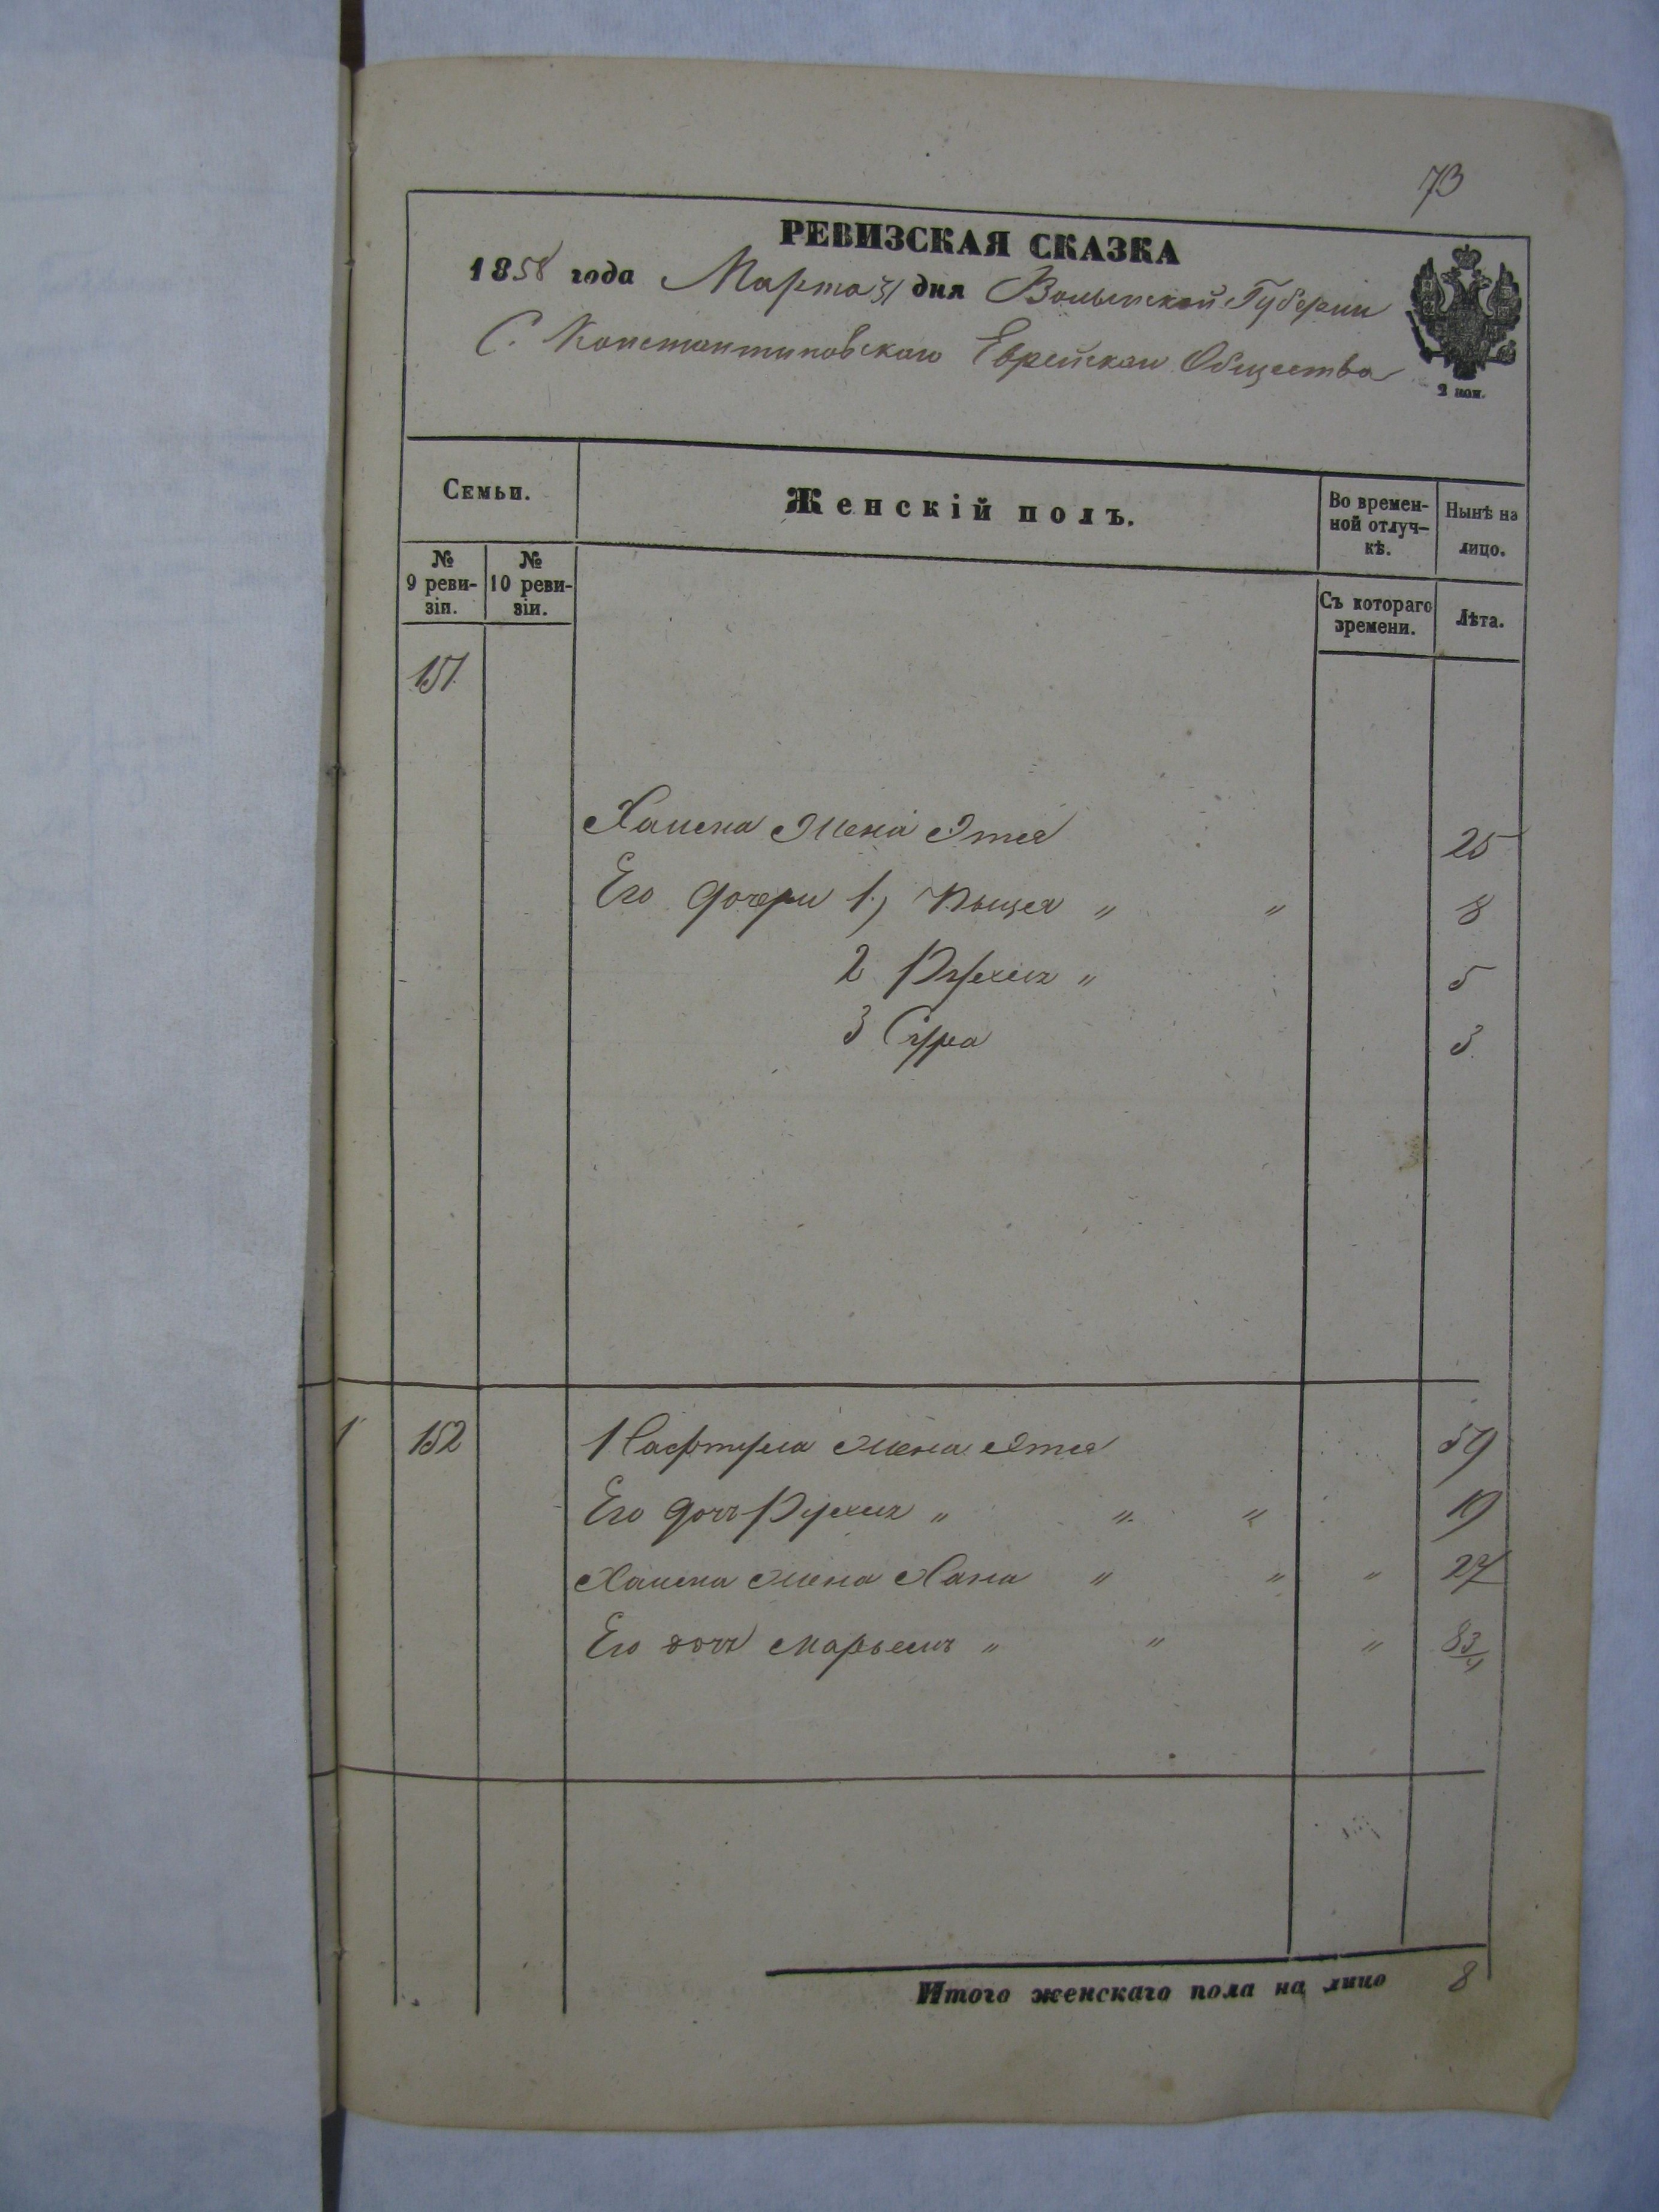 73
РЕВИЗСКАЯ СКАЗКА
1858 года Марта 31 дня Волынской Губернии
С. Константиновскаго Еврейскаго Общества
2 коп.
Семьи.
Женскій полъ.
Во времен-
ной отлуч-
кѣ.
Нынѣ на
лицо.
№
9 реви-
зіи.
№
10 реви-
зіи.
Съ котораго
времени.
Лѣта.
151
Хаима Жена Этя 25
Его дочери 1) " " 8
2 Рухля " 5
3 Сура 3
1 152 Нафтула жена Этя 59
Его дочь Рухля " " " 19
Хаима жена Хана " " " 27
Его дочь Марьемъ " " " 8 3/4
Итого женскаго пола на лицо 8